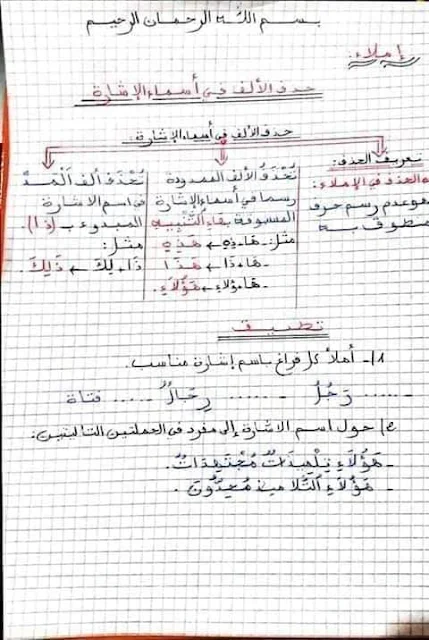 بسم الله الرحمان الرحيم
إملاء:
حذف الألف في أسماء الإشارة
حذف الألف في أسماء الإشارة:
تعريف الحذف:
الحذف في الإملاء:
هو عدم رسم حرف
منطوق به
تُحْذَفُ الألف الممدودة
رسما في أسماء الإشارة
المسبوقة بهاء التَّنْبِيهِ
مثل: ـ هَا ذِهِ ← هَذِهِ
ـ هَا ذَا ← هَذَا
ـ هَا ؤلاءِ ← هَؤُلَاءِ.
تُحْذَفُ ألف الْمَدِّ
في اسم الإشارة
المبدوء بـ (ذَا).
مثل:
ذَا + لِكَ ← ذَلِكَ.
تطبيق
1/- أملأ كل فراغ باسم إشارة مناسب.
...... رَجُلُ ....... رِجَالُ ..... فتاة
2/ حول اسم الإشارة إلى مفرد في الجملتين التاليتين:
ـ هَؤُلَاءِ تِلْمِيذَاتٌ مُجْتَهِدَاتٌ.
ـ هَؤُلَاءِ التَّلَامِيذُ مُجِدُّونَ.